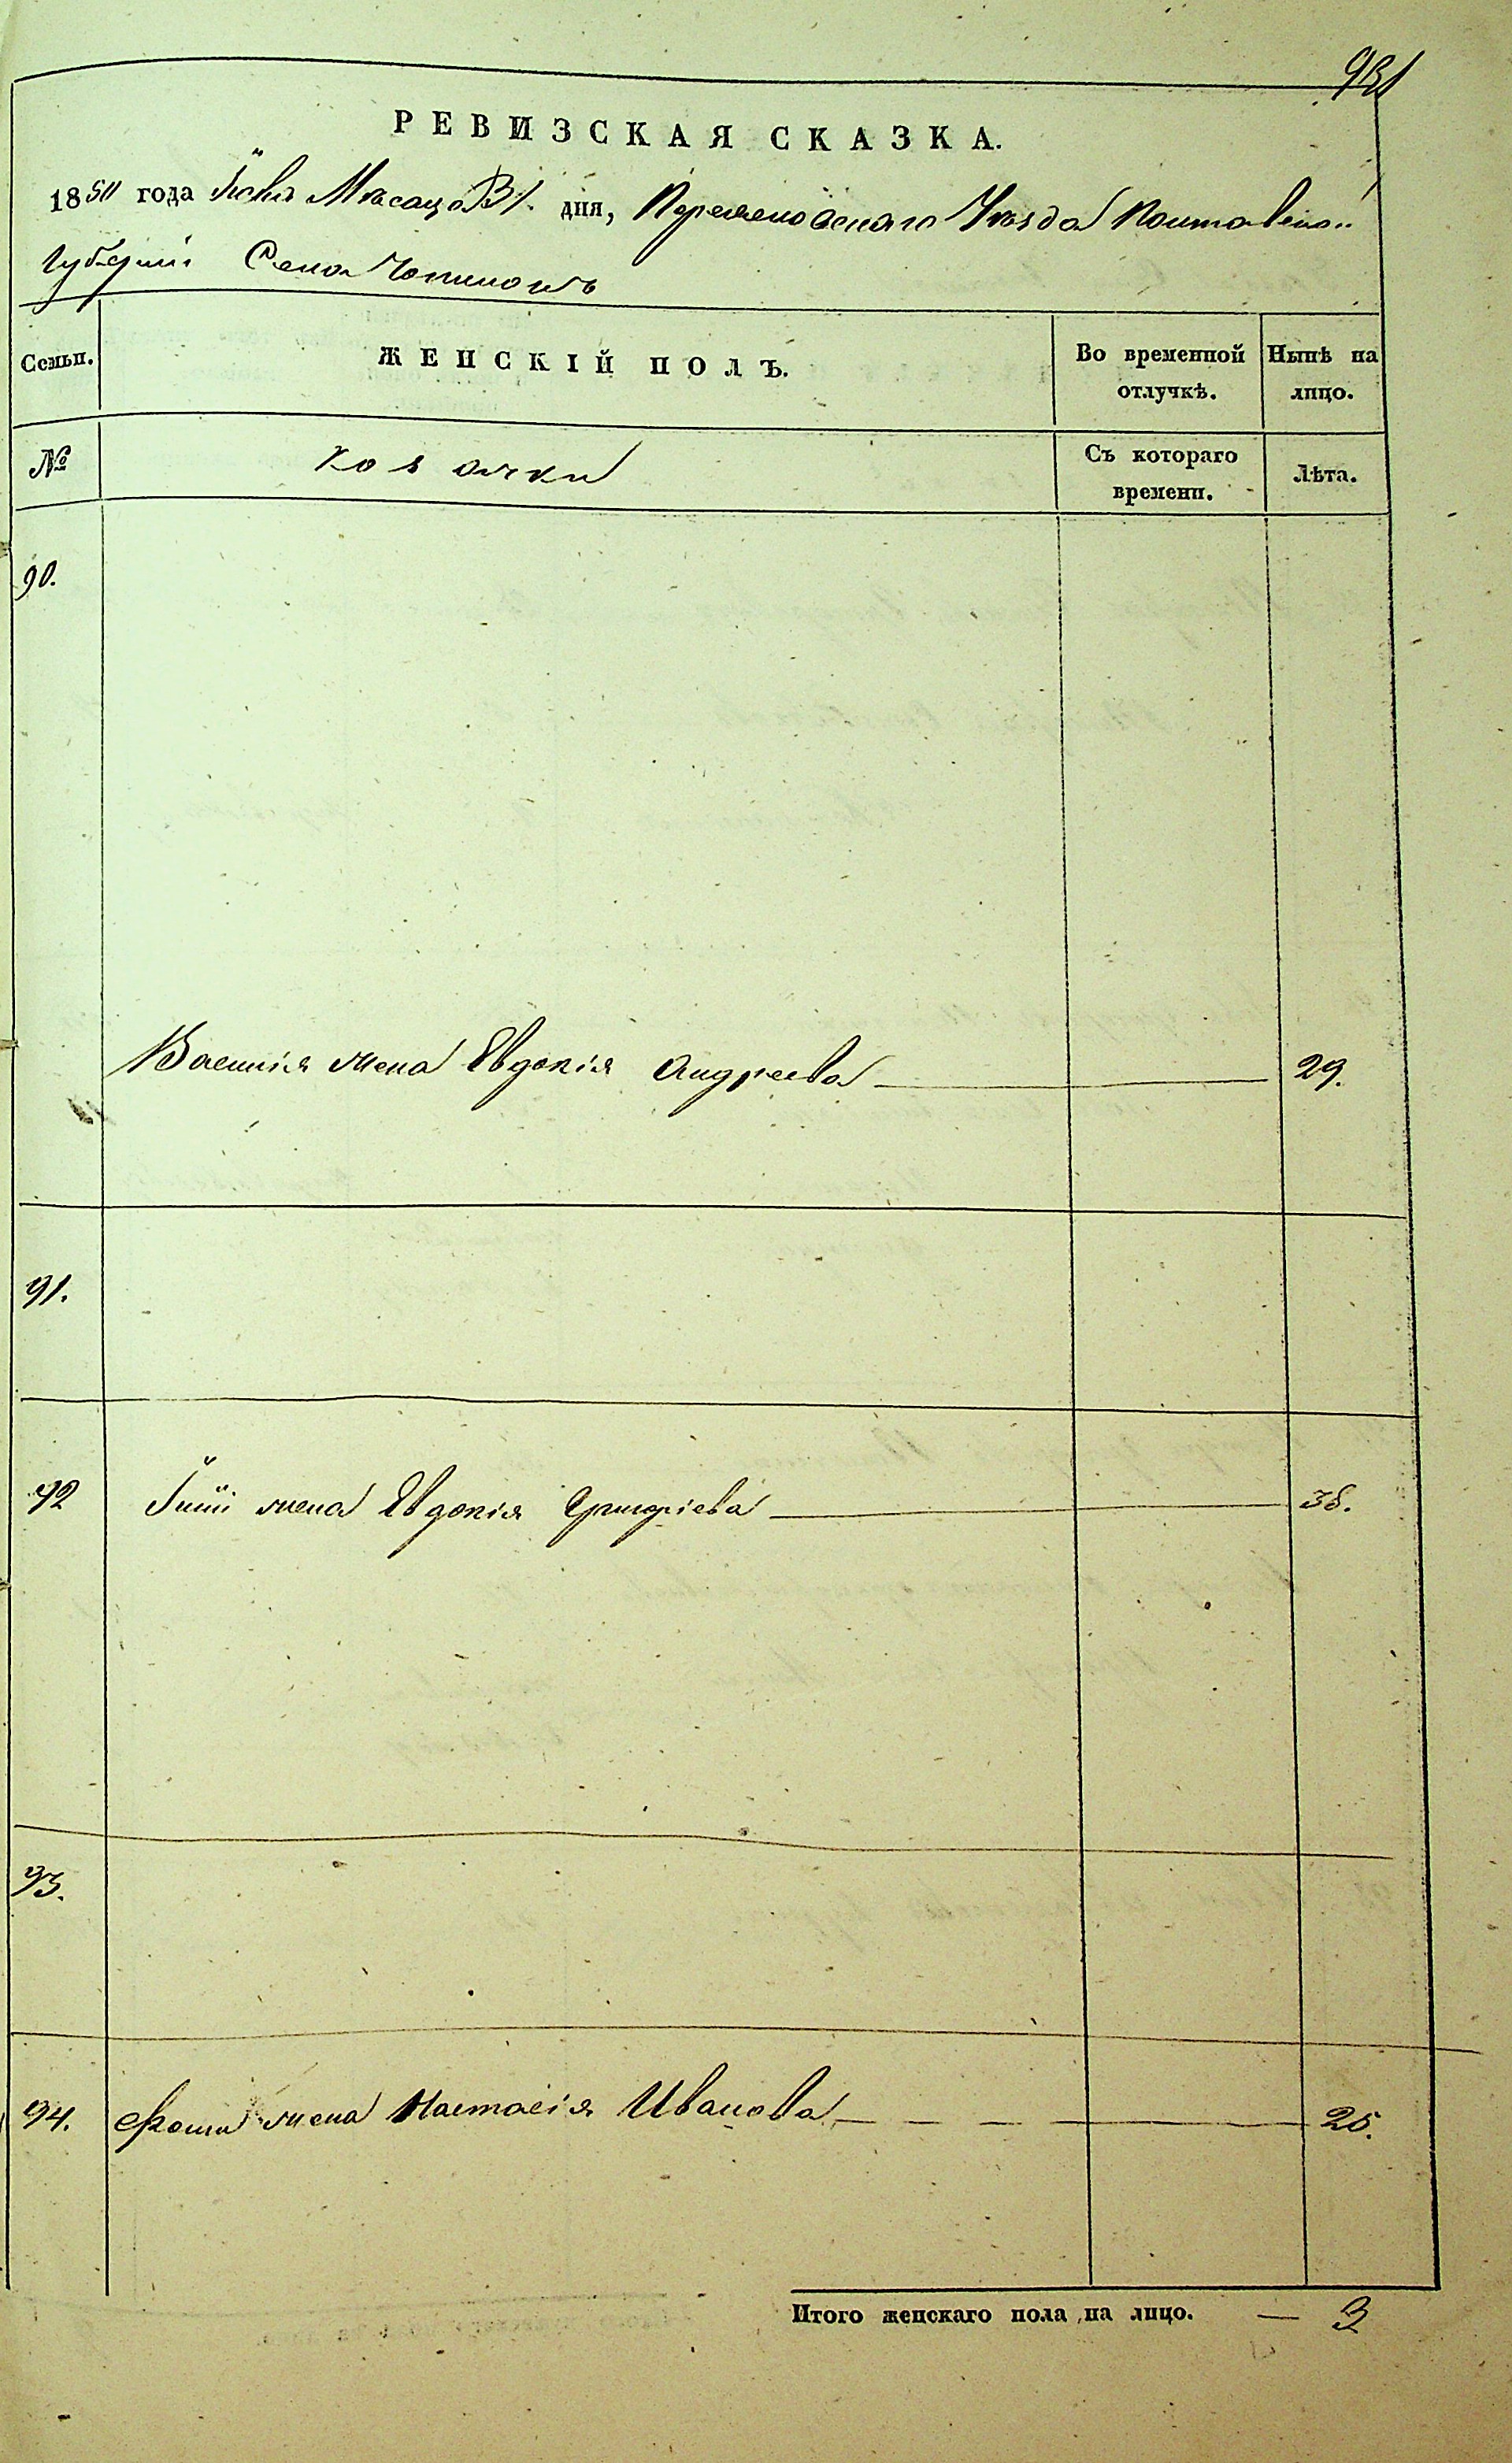 РЕВИЗСКАЯ СКАЗКА.
1850 года Мѣсяца дня, Переясловскаго Уѣзда Полтавской
Губерніи Села
Семьи. ЖЕНСКІЙ ПОЛЪ. Во временной отлучкѣ. Нынѣ на лицо.
№ козачки Съ котораго времени. Лѣта.
90.
Василія жена Евдокія Андреева 29.
91.
92 жена Евдокія Григоріева
93.
94. жена Настасія Иванова 25.
Итого женскаго пола на лицо. — 3